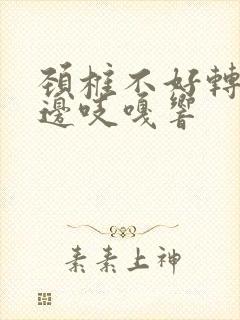 頚椎不好轉
邊吱嘎響
素素上神